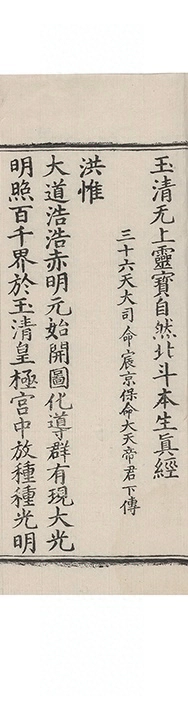 玉清无上靈寶自然北斗本生眞經
三十六天大司命宸京保命大天帝君下傳
洪惟
大道浩浩赤明元始開圖化導群有現大光
明照百千界於玉清皇極宮中放種種光明